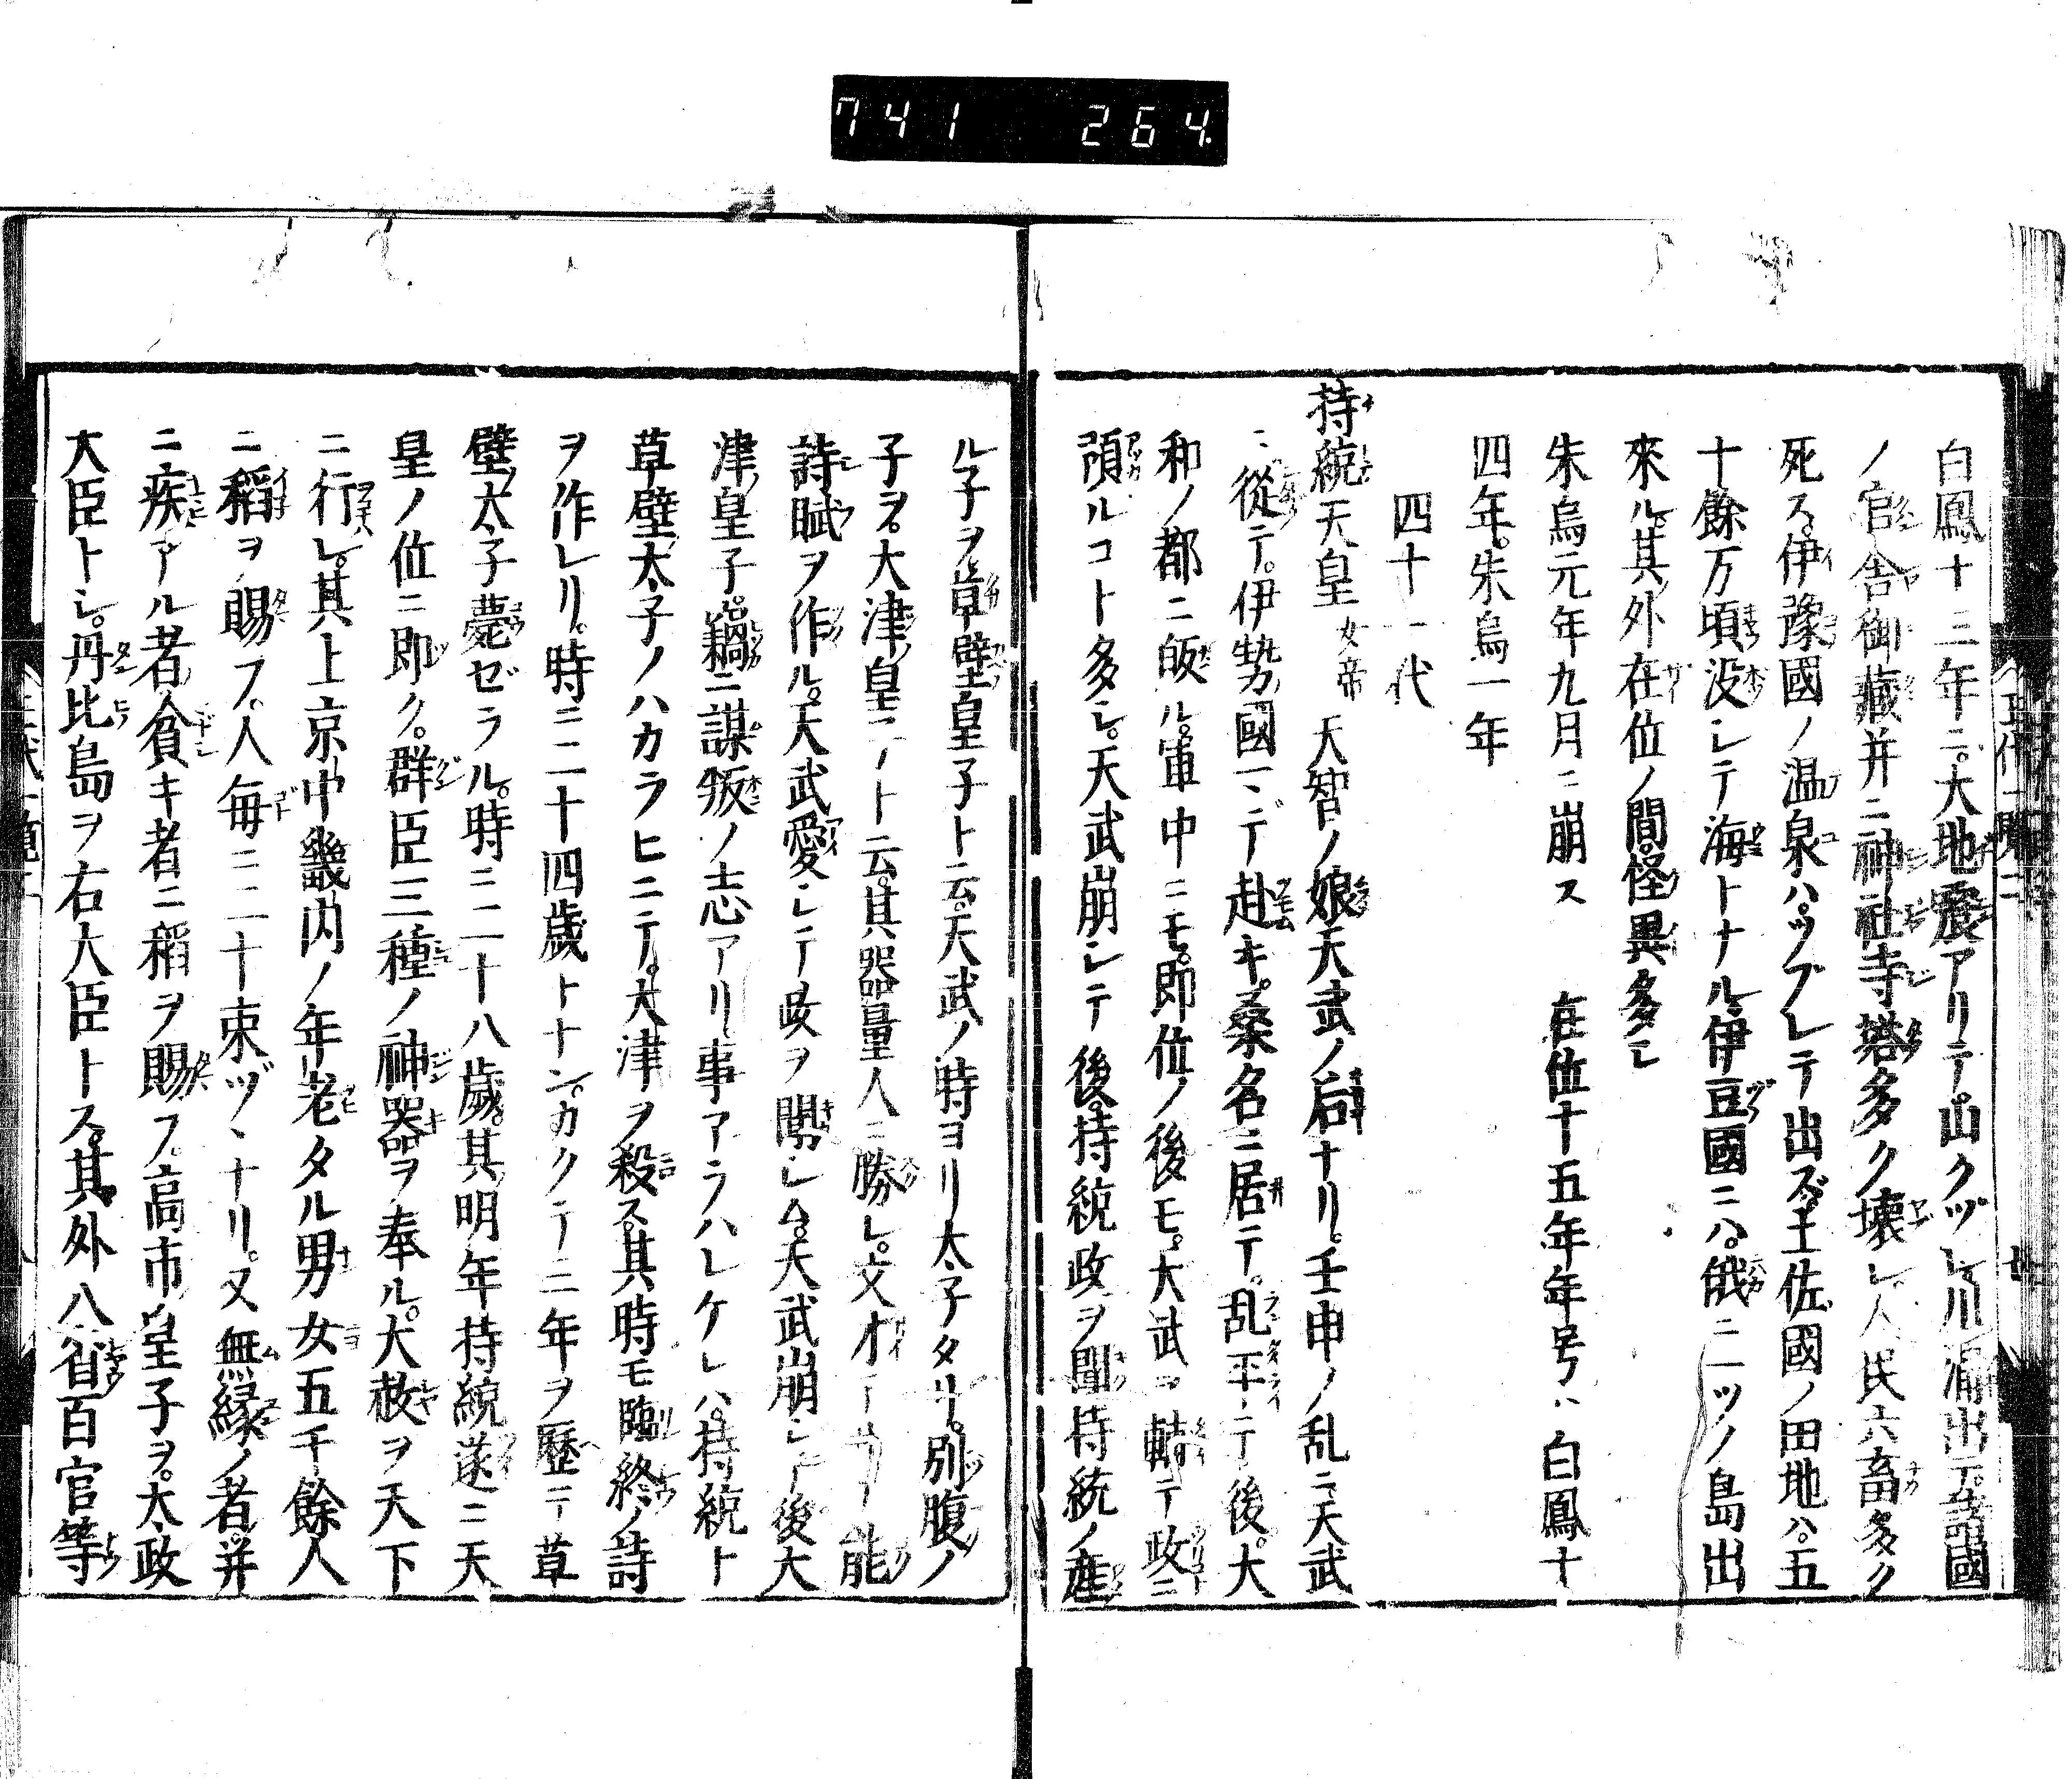 741 264
白鳳十三年ニ。大地震アリテ。山クヅレ川涌出ツ。諸國
ノ官舎御藏并ニ神社寺塔多ク壊レ。人民六畜多ク
死ス。伊豫國ノ温泉ハ。ツブレテ出ズ。土佐國ノ田地ハ。五
十餘万頃没シテ海トナル。伊豆國ニハ。俄ニ一ツノ島出
來ル。其外在位ノ間。怪異多シ
朱鳥元年九月ニ崩ス 在位十五年年号ハ白鳳十
四年。朱鳥一年
四十一代
持統天皇 女帝 天智ノ娘天武ノ后ナリ。壬申ノ乱ニ天武
ニ從テ。伊勢國マデ赴キ。桑名ニ居テ。乱平テ後。大
和ノ都ニ皈ル。軍中ニモ。即位ノ後モ。大武ヲ輔テ政ニ
預ルコト多シ。天武崩シテ後。持統政ヲ聞。持統ノ産
ル子ヲ。草壁皇子ト云。天武ノ時ヨリ太子タリ。別腹ノ
子ヲ。大津皇子ト云。其器量人ニ勝レ。文才アリ。能
詩賦ヲ作ル。天武愛シテ政ヲ聞シム。天武崩シテ後大
津皇子。竊ニ謀叛ノ志アリ。事アラハレケレハ。持統ト
草壁太子ノハカラヒニテ。大津ヲ殺ス。其時モ臨終ノ詩
ヲ作レリ。時ニ二十四歳トナン。カクテ三年ヲ歴テ草
壁太子薨ゼラル。時ニ二十八歳。其明年持統遂ニ天
皇ノ位ニ即ク。群臣三種ノ神器ヲ奉ル。大赦ヲ天下
ニ行レ。其上京中畿内ノ年老タル男女五千餘人
ニ稻ヲ賜フ。人毎ニ二十束ヅヽナリ。又無縁ノ者。并
ニ疾アル者貧キ者ニ稻ヲ賜フ。高市皇子ヲ。太政
大臣トシ。丹比島ヲ右大臣トス。其外八省百官等